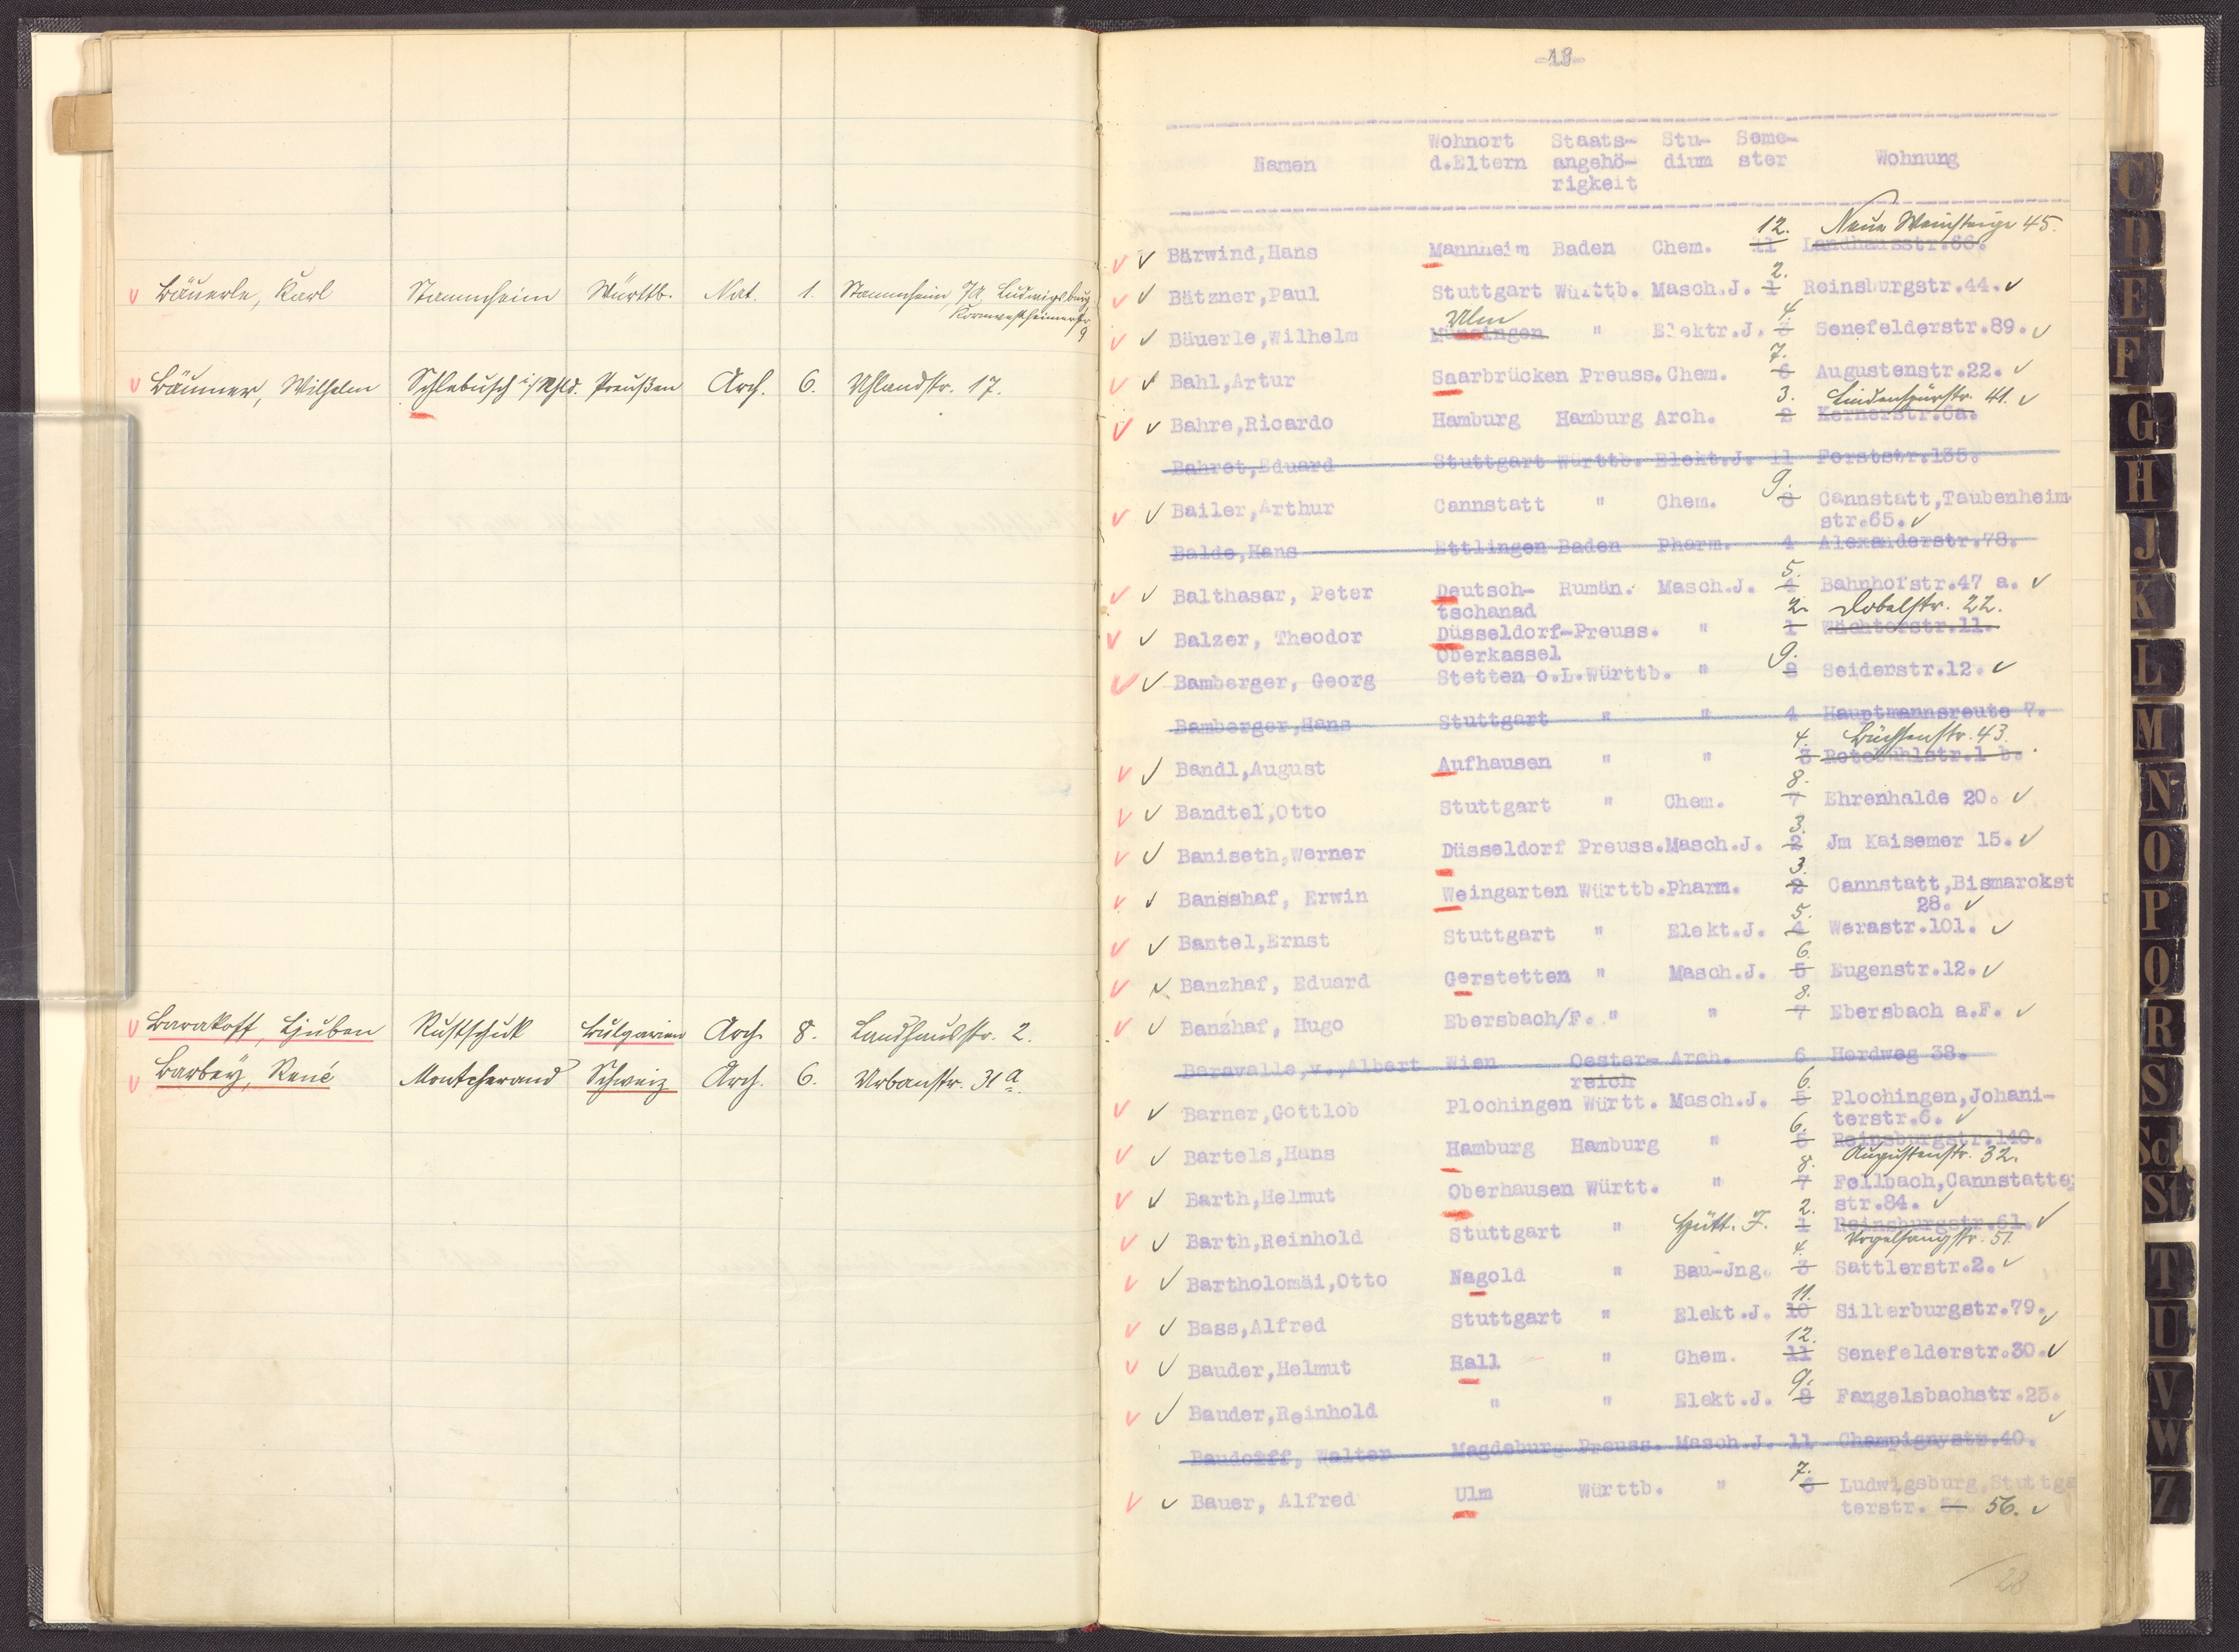 Bäuerle, Karl Stammheim Württb. Nat. 1. Stammheim, O/A. Ludwigsburg
Kornwestheimerstr.
9
Bäumer, Wilhelm Schlebusch i/Rhld. Preußen Arch. 6. Uhlandstr. 17.
Barakoff, Ljuben Rustschuk Bulgarien Arch. 8. Landhausstr. 2.
Barbey, René Montcherand Schweiz Arch. 6. Urbanstr. 31 a.
-19-
Wohnort Staats- Stu- Seme-
Namen d.Eltern angehö- dium ster Wohnung
rigkeit
12. Neue Weinsteige 45.
Bärwind,Hans Mannheim Baden Chem. 11 Landhausstr.66.
2.
Bätzner,Paul Stuttgart Württb. Masch.J. 1 Reinsburgstr.44.
Ulm 4.
Bäuerle,Wilhelm Münsingen " Elektr.J. 3 Senefelderstr.89.
7.
Bahl,Artur Saarbrücken Preuss.Chem. 6 Augustenstr.22.
3. Lindenspürstr. 41.
Bahre,Ricardo Hamburg Hamburg Arch. 2 Kernerstr.6a.
Bahret,Eduard Stuttgart Württb. Elekt.J. 11 Forststr.135.
9.
Bailer,Arthur Cannstatt " Chem. 8 Cannstatt,Taubenheim-
str.65.
Balde,Hans Ettlingen Baden Pharm. 4 Alexanderstr.78.
5.
Balthasar, Peter Deutsch- Rumän. Masch.J. 4 Bahnhofstr.47 a.
tschanad 2. Dobelstr. 22.
Balzer, Theodor Düsseldorf-Preuss. " 1 Wächterstr.11.
Oberkassel 9.
Bamberger, Georg Stetten o.L.Württb. " 8 Seiderstr.12.
Bamberger,Hans Stuttgart " " 4 Hauptmannsreute 7.
4. Büchsenstr. 43.
Bandl,August Aufhausen " " 3 Rotebühlstr.1 b.
8.
Bandtel,Otto Stuttgart " Chem. 7 Ehrenhalde 20.
3.
Baniseth,Werner Düsseldorf Preuss.Masch.J. 2 Jm Kaisemer 15.
3.
Bansshaf, Erwin Weingarten Württb.Pharm. 2 Cannstatt,Bismarckst
28.
5.
Bantel,Ernst Stuttgart " Elekt.J. 4 Werastr.101.
6.
Banzhaf, Eduard Gerstetten " Masch.J. 5 Eugenstr.12.
8.
Banzhaf, Hugo Ebersbach/F. " " 7 Ebersbach a.F.
Baravalle,v.,Albert Wien Oester- Arch. 6 Herdweg 38.
reich
6.
Barner,Gottlob Plochingen Württ. Masch.J. 5 Plochingen,Johani-
terstr.6.
6.
Bartels,Hans Hamburg Hamburg " 5 Reinsburgstr.140.
8. Augustenstr. 32.
Barth,Helmut Oberhausen Württ. " 7 Fellbach,Cannstatter
str.84.
2.
Barth,Reinhold Stuttgart " Hütt. J. 1 Reinsburgstr.61.
4. Vogelsangstr. 51.
Bartholomäi,Otto Nagold " Bau-Jng. 3 Sattlerstr.2.
11.
Bass,Alfred Stuttgart " Elekt.J. 10 Silberburgstr.79.
12.
Bauder,Helmut Hall " Chem. 11 Senefelderstr.30.
9.
Bauder,Reinhold " " Elekt.J. 8 Fangelsbachstr.23.
Baudorff, Walter Magdeburg Preuss. Masch.J. 11 Champignystr.40.
7.
Bauer, Alfred Ulm Württb. " 6 Ludwigsburg,Stuttga
terstr. 56.
28
C
D
E
F
G
H
J
K
L
M
N
O
P
Q
R
S
Sch
St
T
U
V
W
Z